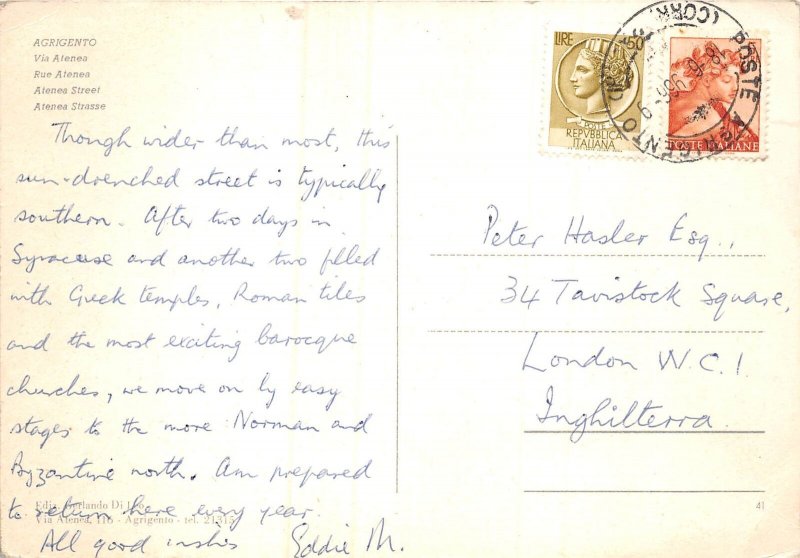 AGRIGENTO
Via Atenea
Rue Atenea
Atenea Street
Atenea Strasse
Though wider than most, this
sun-drenched street is typically
southern. After two days in
Syracuse and another two filled
with Greek temples, Roman tiles
and the most exciting barocque
churches, we move on by easy
stages to the more Norman and
Byzantine north. Am prepared
to return here every year.
All good wishes Eddie M.
Ediz. Gerlando Di
Via Atenea, 116 - Agrigento - tel. 21315
LIRE 50
POSTE
REPVBBLICA
ITALIANA
POSTE ITALIANE
POSTE AGRIGENTO
(CORR
Peter Hasler Esq.,
34 Tavistock Square,
London W.C.1
Inghilterra
41